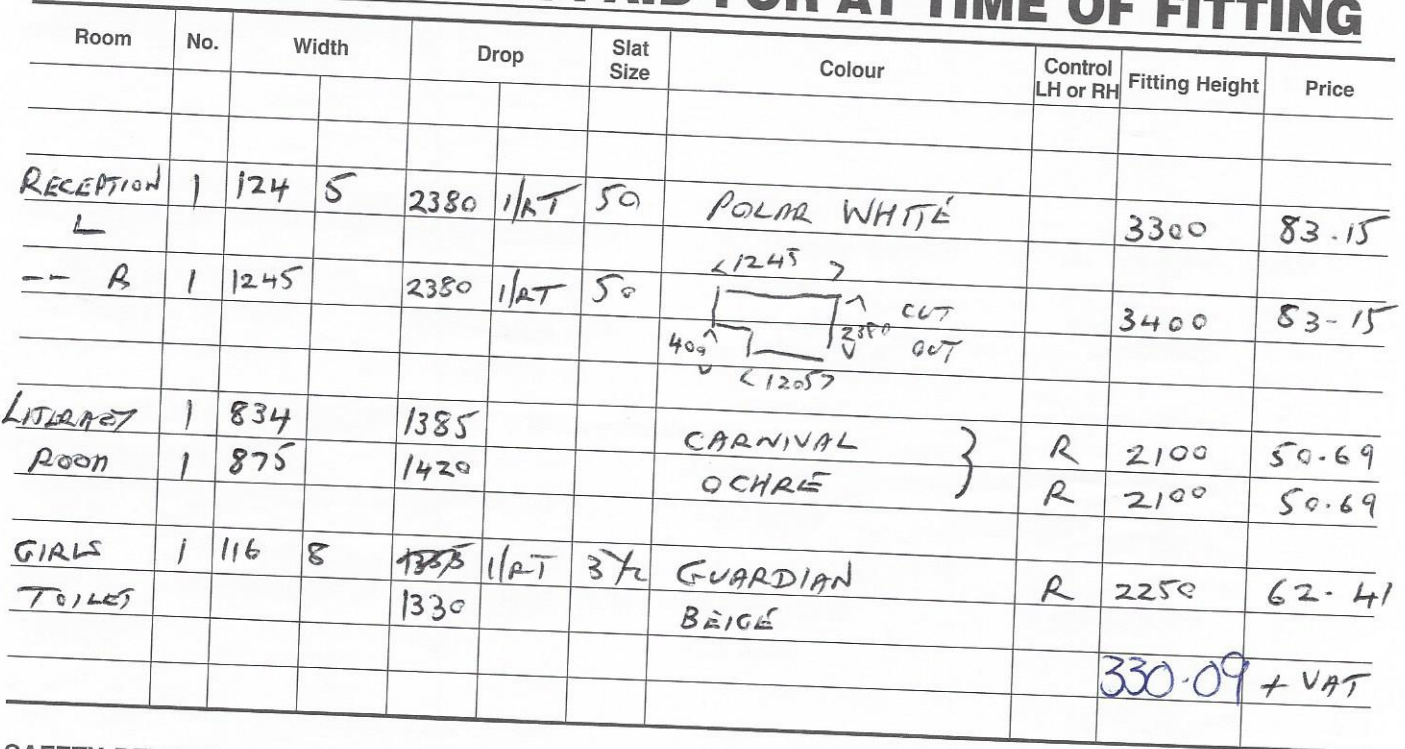 PAID FOR AT TIME OF FITTING
Room No. Width Drop Slat Size Colour Control LH or RH Fitting Height Price
RECEPTION 1 124 5 2380 1/RT 50 POLAR WHITE 3300 83.15
L
-- R 1 1245 2380 1/RT 50 <1245> 3400 83-15
CUT
400 2380 OUT
<1205>
LITERACY 1 834 1385 CARNIVAL R 2100 50.69
ROOM 1 875 1420 OCHRE R 2100 50.69
GIRLS 1 116 8 1/RT 3½ GUARDIAN R 2250 62.41
TOILET 1330 BEIGE
330.09 + VAT